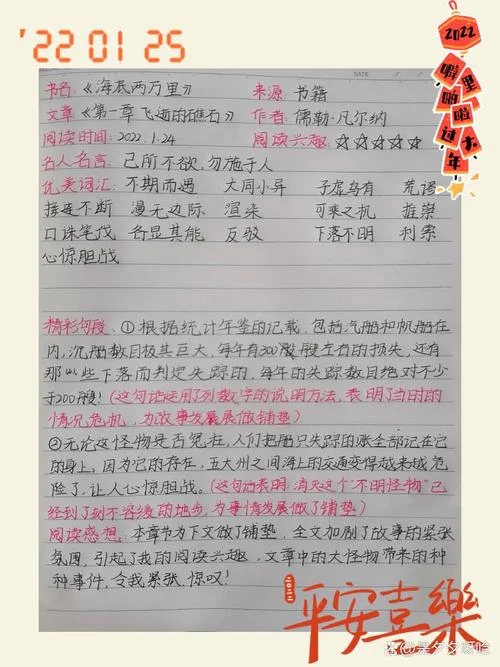 '22 01 25
2022
噼里啪啦过大年
DATE / /
书名:《海底两万里》 来源:书籍
文章《第一章 飞逝的礁石》 作者:儒勒·凡尔纳
阅读时间:2022.1.24 阅读兴趣:☆☆☆☆☆
名人名言:己所不欲,勿施于人
优美词汇:不期而遇 大同小异 子虚乌有 荒谬
接连不断 漫无边际 渲染 可乘之机 推崇
口诛笔伐 各显其能 反驳 下落不明 利索
心惊胆战
精彩句段:①根据统计年鉴的记载,包括汽船和帆船在
内,沉船数目极其巨大,每年有300艘左右的损失,还有
那些下落而判定失踪的,每年的失踪数目绝对不少
于200艘!(这句话运用了列数字的说明方法,表明了当时的
情况危机,为故事发展做铺垫)
②无论这怪物是否冤在,人们把船只失踪的账全部记在它
的身上,因为它的存在,五大州之间海上的交通变得越来越危
险了,让人心惊胆战。(这句话表明:消灭这个"不明怪物"已
经到了刻不容缓的地步,为事情发展做了铺垫)
阅读感想:本章节为下文做了铺垫,全文加剧了故事的紧张
氛围,引起了我的阅读兴趣,文章中的大怪物带来的种
种事件,令我紧张、惊叹!
平安喜樂